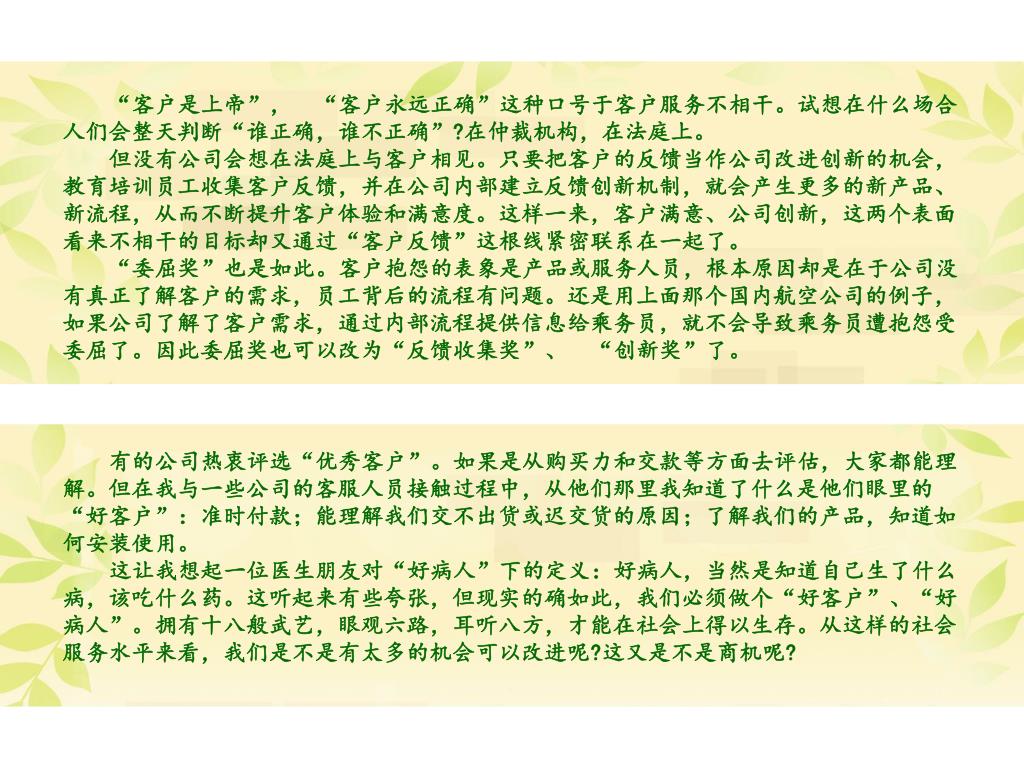 “客户是上帝”， “客户永远正确”这种口号于客户服务不相干。试想在什么场合
人们会整天判断“谁正确，谁不正确”?在仲裁机构，在法庭上。
但没有公司会想在法庭上与客户相见。只要把客户的反馈当作公司改进创新的机会，
教育培训员工收集客户反馈，并在公司内部建立反馈创新机制，就会产生更多的新产品、
新流程，从而不断提升客户体验和满意度。这样一来，客户满意、公司创新，这两个表面
看来不相干的目标却又通过“客户反馈”这根线紧密联系在一起了。
“委屈奖”也是如此。客户抱怨的表象是产品或服务人员，根本原因却是在于公司没
有真正了解客户的需求，员工背后的流程有问题。还是用上面那个国内航空公司的例子，
如果公司了解了客户需求，通过内部流程提供信息给乘务员，就不会导致乘务员遭抱怨受
委屈了。因此委屈奖也可以改为“反馈收集奖”、 “创新奖”了。
有的公司热衷评选“优秀客户”。如果是从购买力和交款等方面去评估，大家都能理
解。但在我与一些公司的客服人员接触过程中，从他们那里我知道了什么是他们眼里的
“好客户”：准时付款；能理解我们交不出货或迟交货的原因；了解我们的产品，知道如
何安装使用。
这让我想起一位医生朋友对“好病人”下的定义：好病人，当然是知道自己生了什么
病，该吃什么药。这听起来有些夸张，但现实的确如此，我们必须做个“好客户”、“好
病人”。拥有十八般武艺，眼观六路，耳听八方，才能在社会上得以生存。从这样的社会
服务水平来看，我们是不是有太多的机会可以改进呢?这又是不是商机呢?